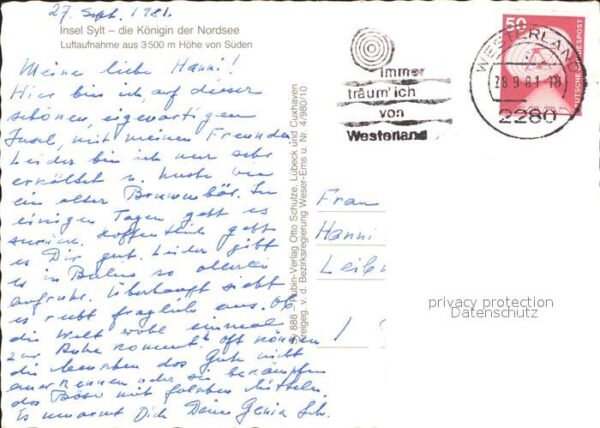 27. Sept. 1981.
Insel Sylt – die Königin der Nordsee
Luftaufnahme aus 3500 m Höhe von Süden
Meine liebe Hanni!
Hier bin ich, auf dieser
schönen, eigenartigen
Insel, mit meinen Freunden
Leider bin ich nur sehr
erkältet u. huste wie
ein alter Brummbär. In
einigen Tagen geht es
zurück. Hoffentlich geht
es Dir gut. Leider gibt
es in so allerlei
Überhaupt sieht
es recht fraglich aus. Ob
die Welt wohl einmal
zur Ruhe kommt? Oft können
die Menschen das Gute nicht
anerkennen oder sie bekämpfen
das Böse mit falschen Mitteln.
Es umarmt Dich Deine Genia Sch.
Sy 888 – Rubin-Verlag Otto Schulze, Lübeck und Cuxhaven
Freigeg. v. d. Bezirksregierung Weser-Ems u. Nr. 4/980/10
immer
träum' ich
von
Westerland
WESTERLAND
28.9.81.-18
2280
50
DEUTSCHE BUNDESPOST
Frau
Hanni
privacy protection
Datenschutz